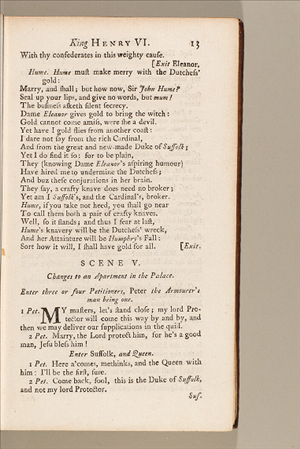 King HENRY VI. 13
With thy confederates in this weighty cause.
[Exit Eleanor.
Hume. Hume must make merry with the Dutchess'
gold:
Marry, and shall; but how now, Sir John Hume?
Seal up your lips, and give no words, but mum!
The business asketh silent secrecy.
Dame Eleanor gives gold to bring the witch:
Gold cannot come amiss, were she a devil.
Yet have I gold flies from another coast:
I dare not say from the rich Cardinal,
And from the great and new-made Duke of Suffolk;
Yet I do find it so: for to be plain,
They (knowing Dame Eleanor's aspiring humour)
Have hired me to undermine the Dutchess;
And buz these conjurations in her brain.
They say, a crafty knave does need no broker;
Yet am I Suffolk's, and the Cardinal's, broker.
Hume, if you take not heed, you shall go near
To call them both a pair of crafty knaves.
Well, so it stands; and thus I fear at last,
Hume's knavery will be the Dutchess' wreck,
And her Attainture will be Humphry's Fall:
Sort how it will, I shall have gold for all. [Exit.
SCENE V.
Changes to an Apartment in the Palace.
Enter three or four Petitioners, Peter the Armourer's
man being one.
1 Pet. MY masters, let's stand close; my lord Pro-
tector will come this way by and by, and
then we may deliver our supplications in the quill.
2 Pet. Marry, the Lord protect him, for he's a good
man, Jesu bless him!
Enter Suffolk, and Queen.
1 Pet. Here a'comes, methinks, and the Queen with
him: I'll be the first, sure.
2 Pet. Come back, fool, this is the Duke of Suffolk,
and not my lord Protector.
Suf.